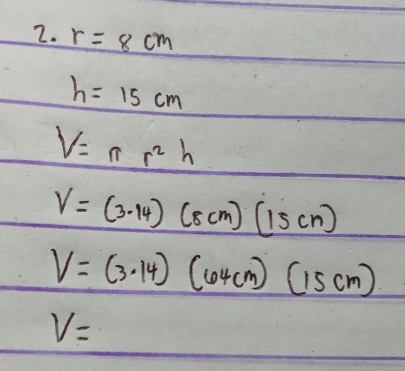 2. r = 8 cm
h = 15 cm
V = π r² h
V = (3.14) (8 cm) (15 cm)
V = (3.14) (64 cm) (15 cm)
V =